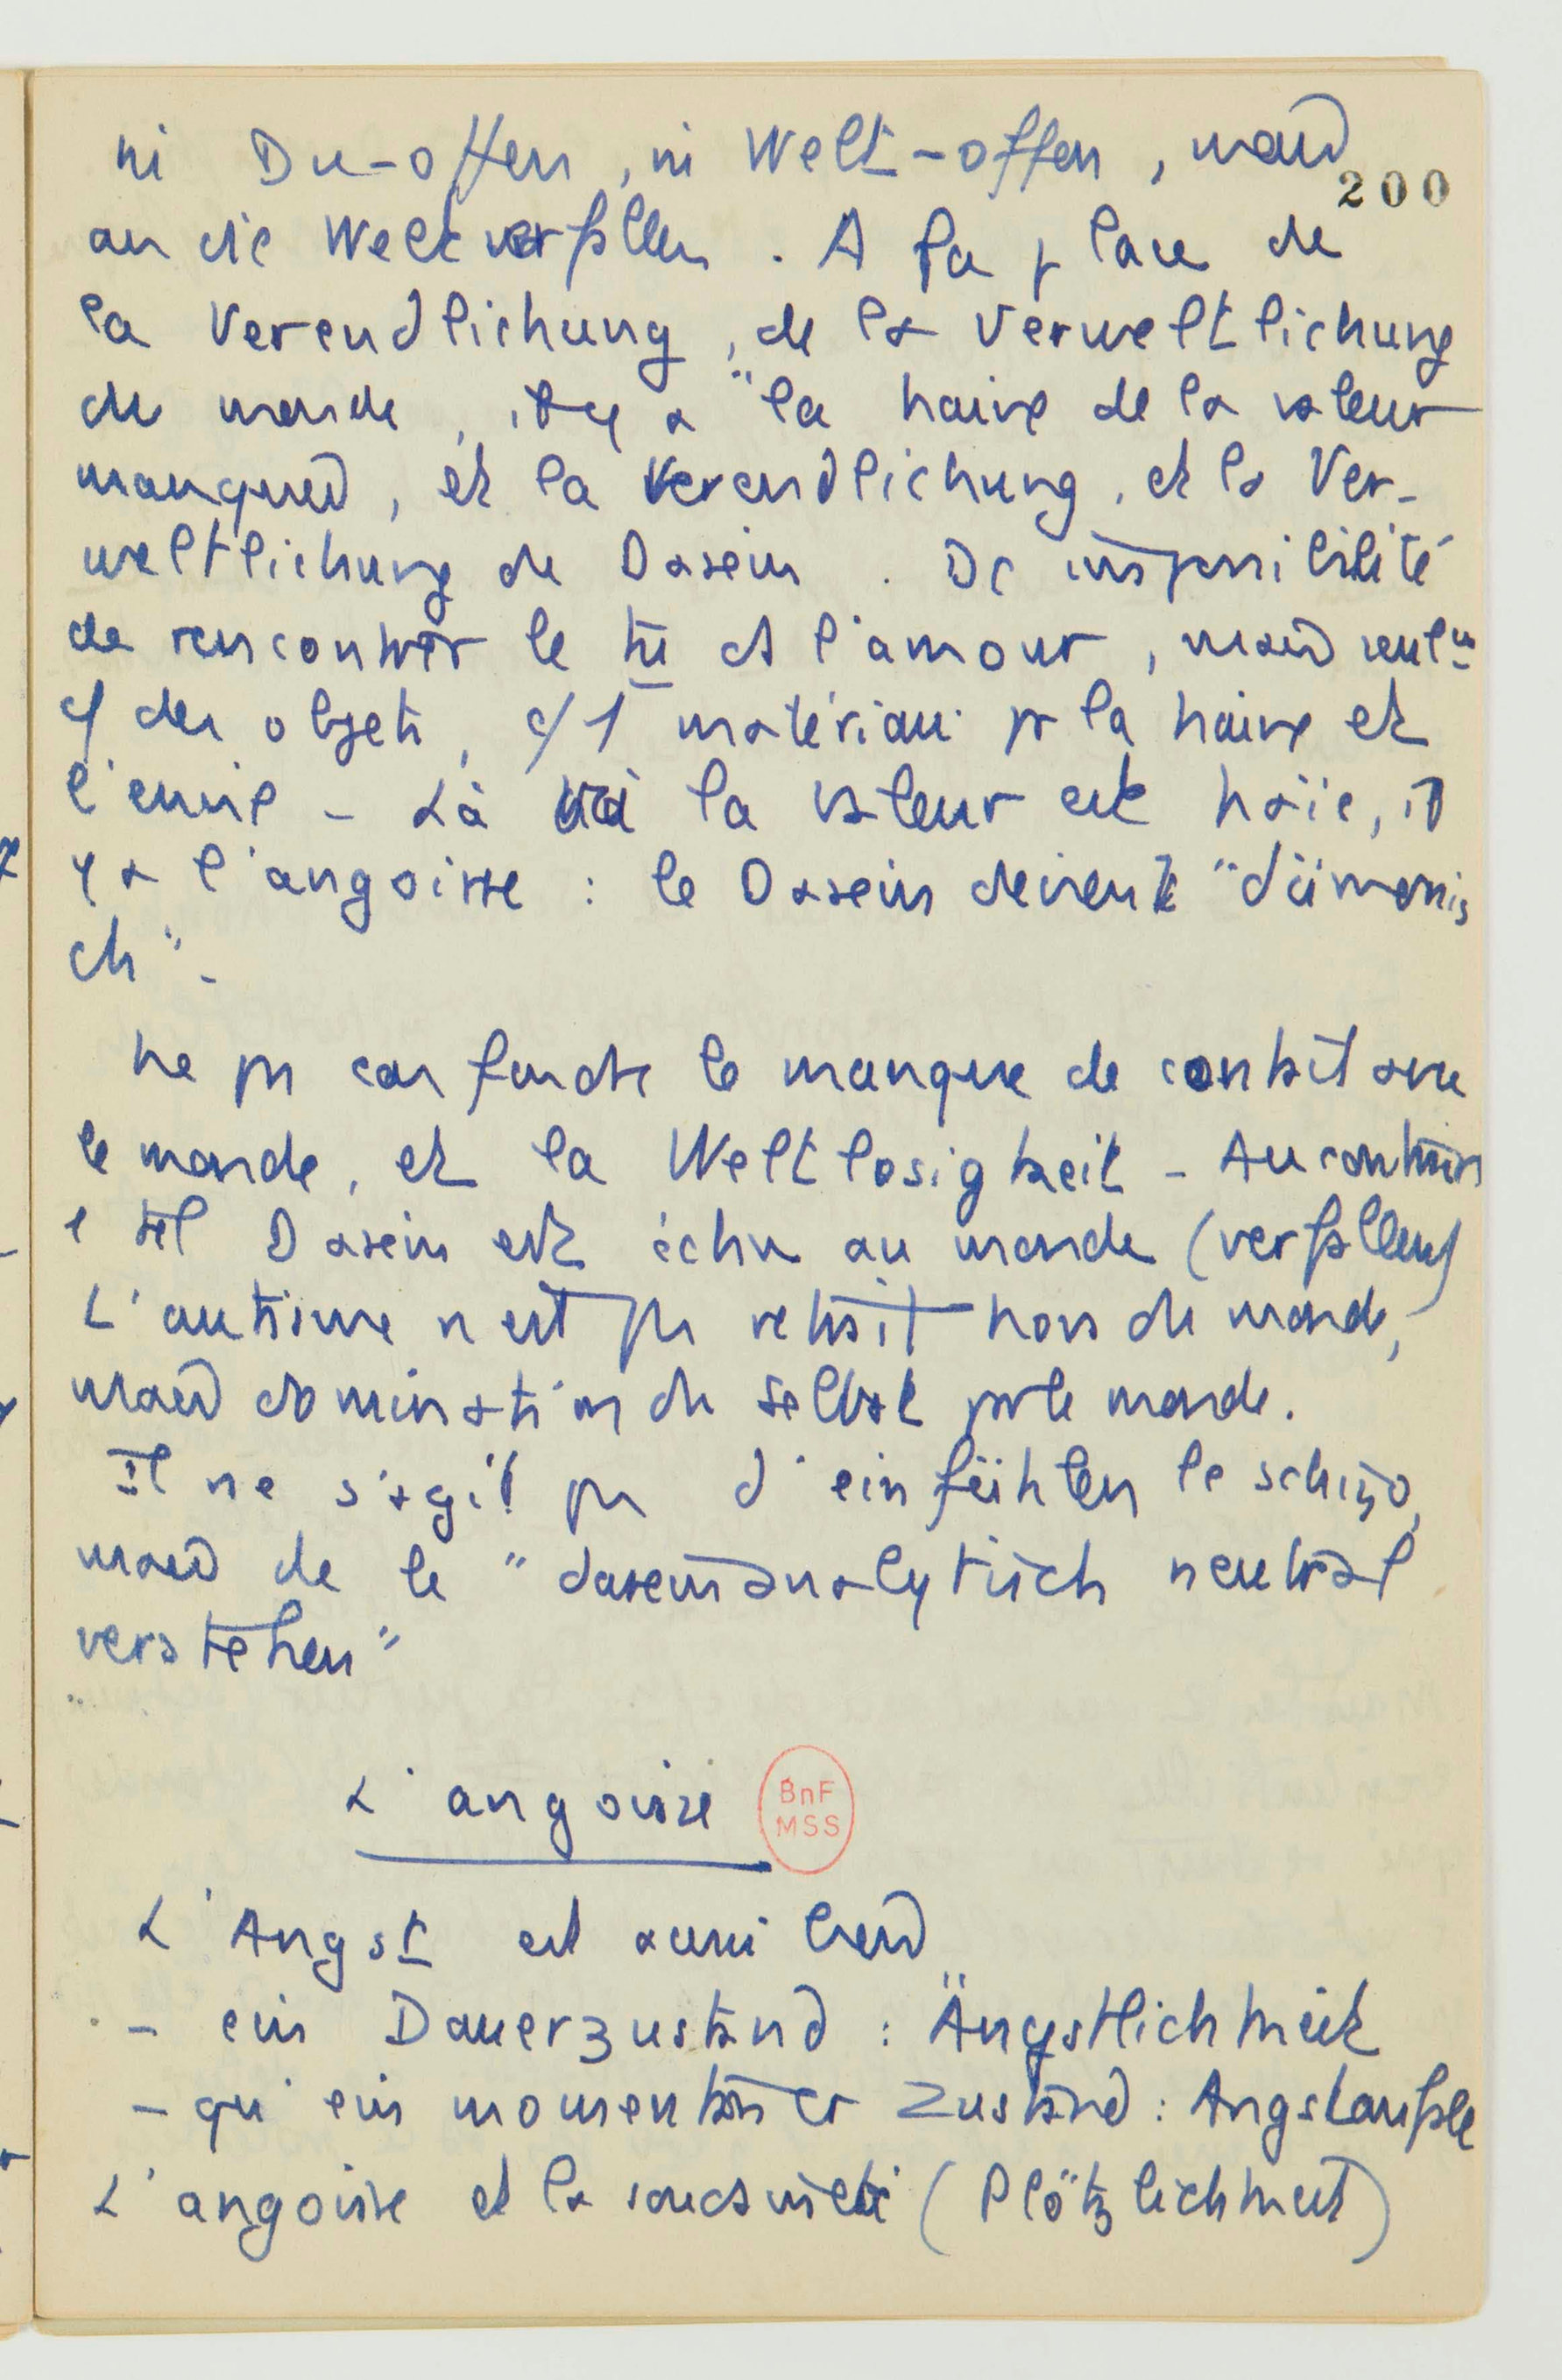 ni Du-offen, ni Welt-offen, mais
200
an die Welt verfallen. A la place de
la Verendlichung, de la Verweltlichung
du monde, il y a "la haine de la valeur
manquée, et la Verendlichung, et la Ver-
weltlichung du Dasein. De impossibilité
de rencontrer le tu ds l'amour, mais seulmt
cf des objets, cf 1 matériau pr la haine et
l'envie - Là où la valeur est haïe, il
y a l'angoisse : le Dasein devient "dämonis
ch" -
Ne pas confondre le manque de contact avec
le monde, et la Weltlosigkeit - Au contraire
1 tel Dasein est échu au monde (verfallen)
L'autisme n'est pas retrait hors du monde,
mais domination du Selbst par le monde.
Il ne s'agit pas d'einfühlen le schizo,
mais de le "daseinsanalytisch neutral
verstehen"
L'angoisse
BnF
MSS
L'Angst est aussi bien
- ein Dauerzustand : Ängstlichkeit
- qu'ein momentaner Zustand : Angstanfälle
L'angoisse et la soudaineté (Plötzlichkeit)